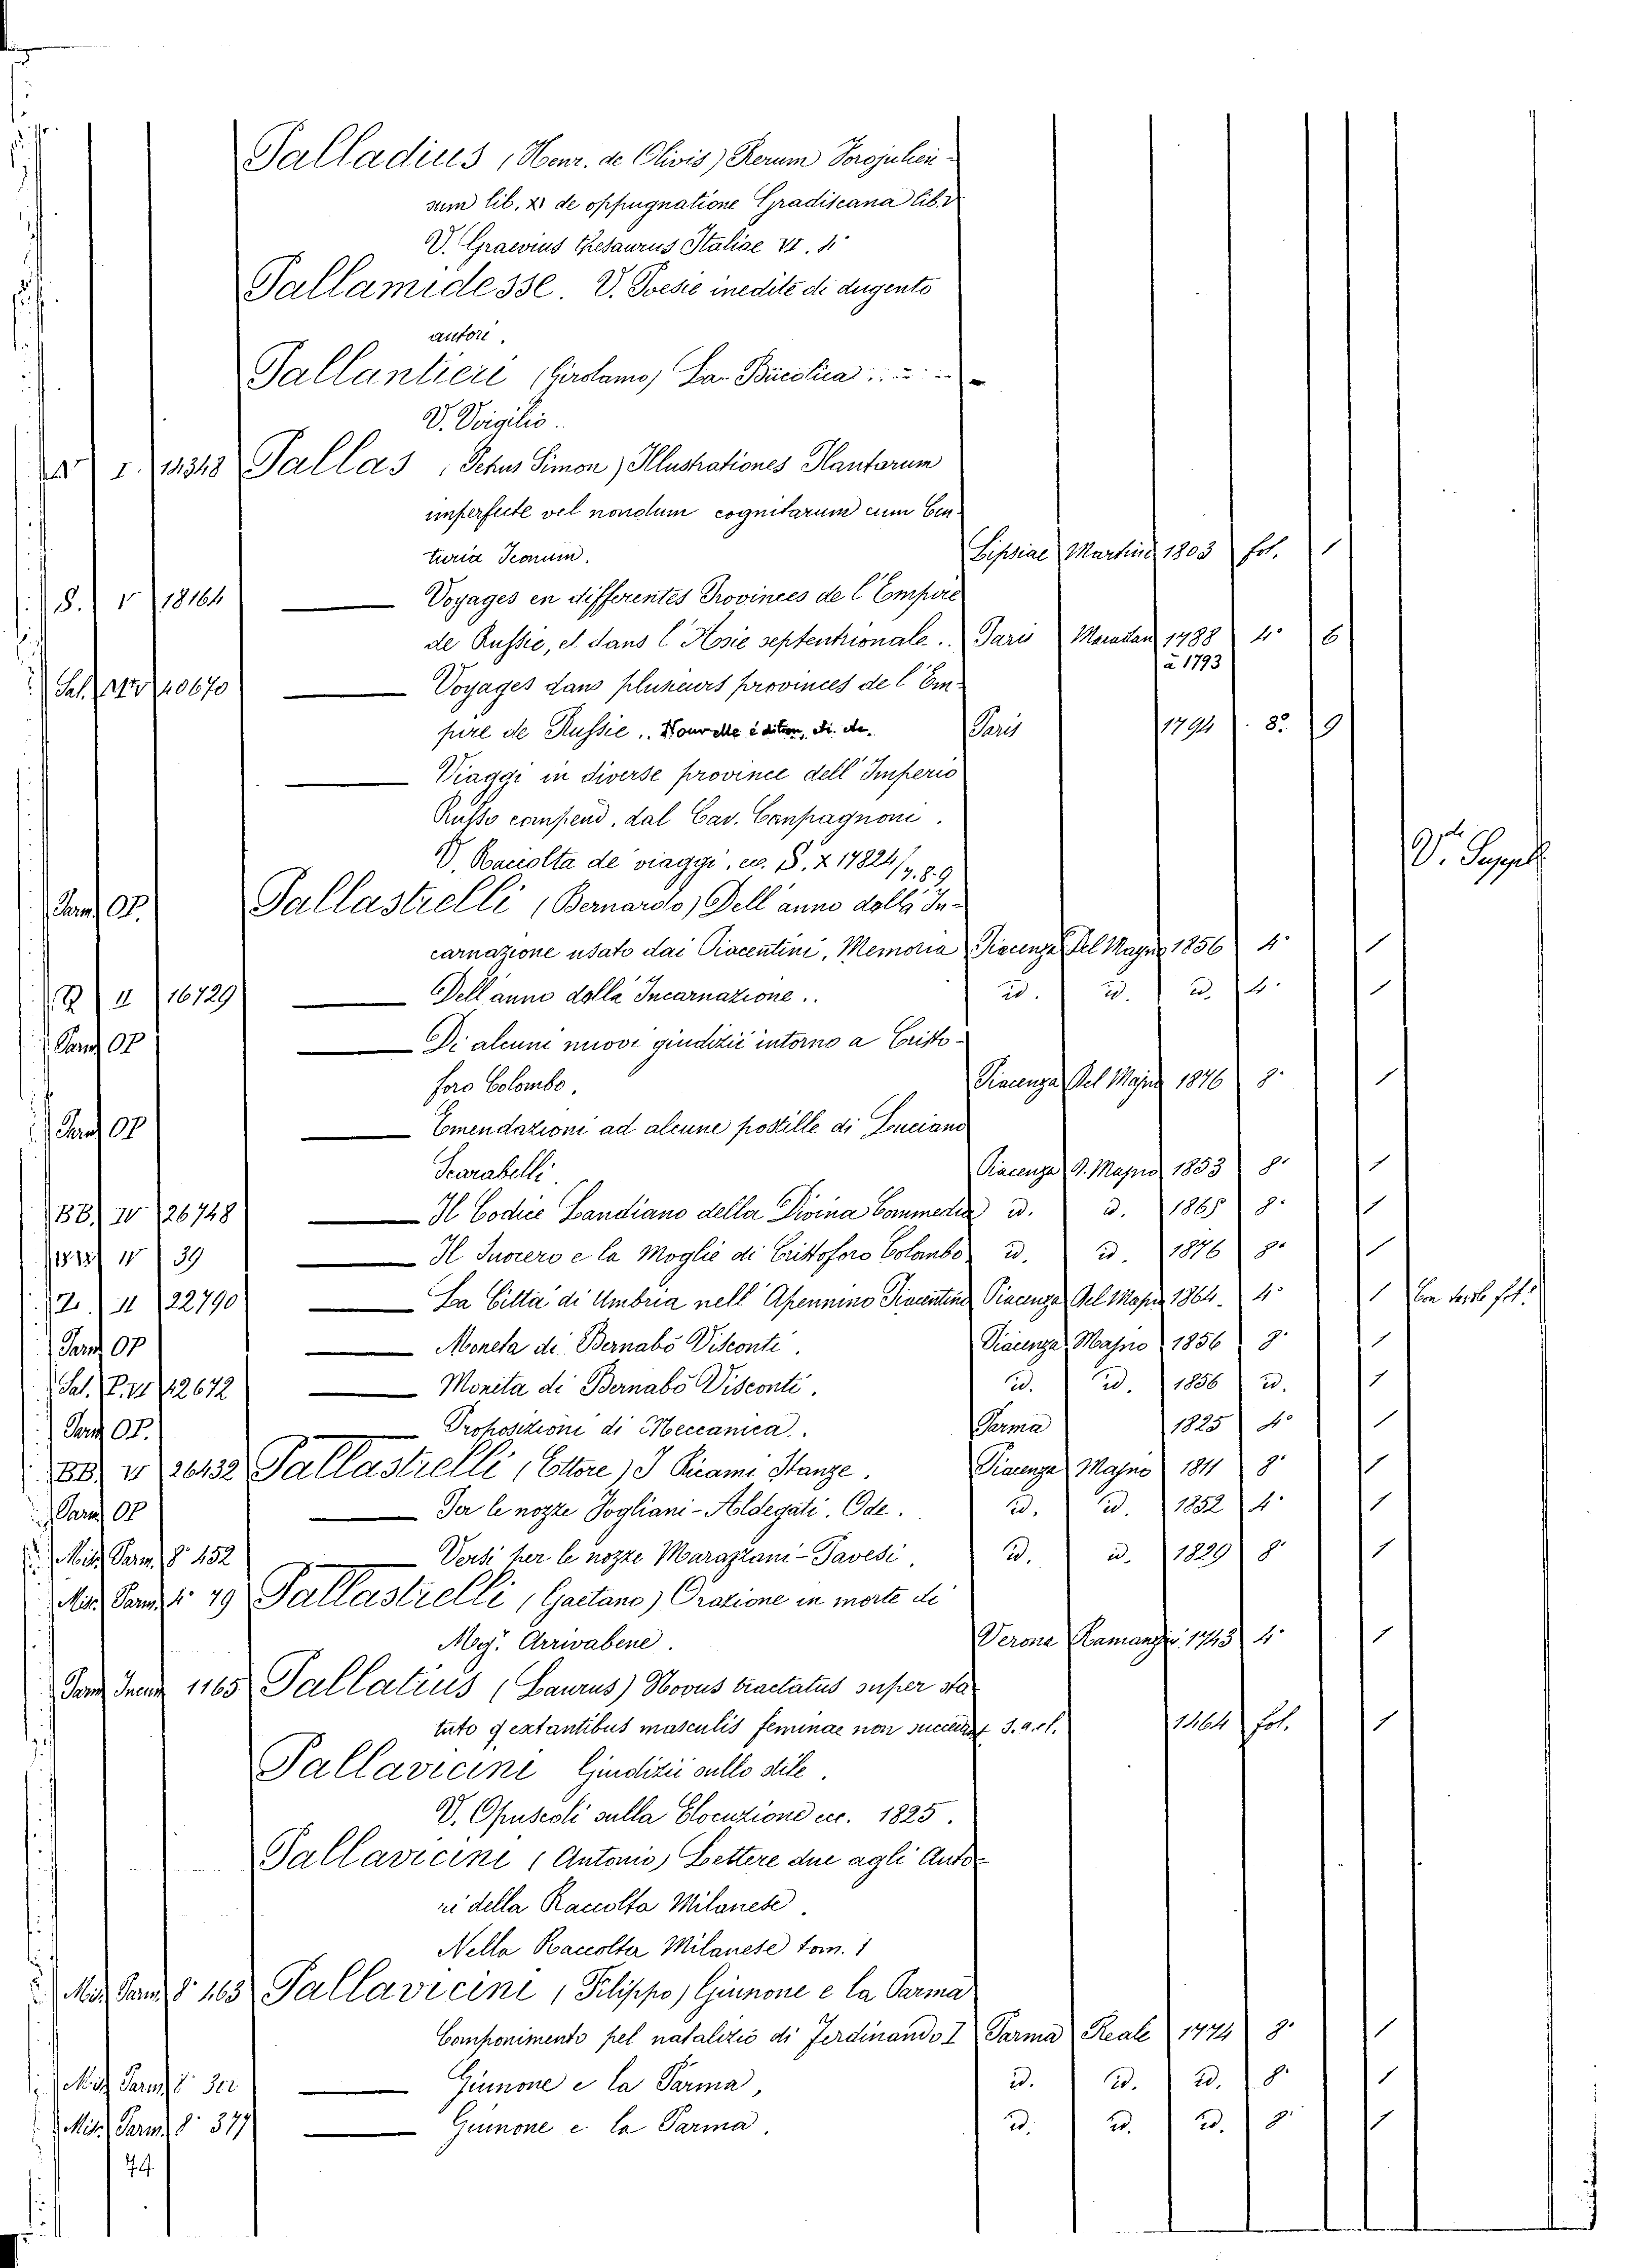 Palladius (Henr. de Olivis) Rerum Forojulien-
sum lib. XI de oppugnatione Gradiscana lib. V
V. Graevius thesaurus Italiae VI. 4
Pallamidesse. V. Poesie inedite di dugento
autori.
Pallantieri (Girolamo) La Bucolica ...
V. Virgilio.
I. 14348 Pallas (Petrus Simon) Illustrationes Plantarum
imperfecte vel nondum cognitarum cum Cen-
turia Iconum. Lipsiae Martini 1803 fol. 1
S. V 18164 Voyages en differentes Provinces de l'Empire
de Russie, et dans l'Asie septentrionale.. Paris Maradan 1788 4° 6
à 1793
Sal. 40670 Voyages dans plusieurs provinces de l'Em-
pire de Russie.. Nouvelle édition, Paris 1794 8° 9
Viaggi in diverse province dell'Imperio
Russo compend. dal Cav. Campagnoni.
V. Raccolta de' viaggi, ec. S. X 17824/7.8.9
V. Suppl
Parm OP. Pallastrelli (Bernardo) Dell'anno dalla In-
carnazione usato dai Piacentini, Memoria Piacenza Del Majno 1856 4° 1
II 16729 Dell'anno dalla Incarnazione.. id. id. id. 4° 1
Parm OP Di alcuni nuovi giudizii intorno a Cristo-
foro Colombo. Piacenza Del Majno 1876 8° 1
Parm OP Emendazioni ad alcune postille di Luciano
Scarabelli. Piacenza D. Majno 1853 8° 1
BB. IV 26748 Il Codice Landiano della Divina Commedia id. id. 1865 8° 1
IV 39 Il Suocero e la Moglie di Cristoforo Colombo id. id. 1876 8° 1
Z. II 22790 La Città di Umbria nell'Apennino Piacentino Piacenza Del Majno 1864. 4° 1
Parm OP Moneta di Bernabò Visconti. Piacenza Majno 1856 8° 1
Sal. P. VI 42672 Monita di Bernabò Visconti. id. id. 1856 id. 1
Parm OP. Proposizioni di Meccanica. Parma 1825 4° 1
BB. V 26432 Pallastrelli (Ettore) I Ricami Stanze. Piacenza Majno 1811 8° 1
Parm OP Per le nozze Fogliani-Aldegati. Ode. id. id. 1852 4° 1
Misc Parm. 8° 452 Versi per le nozze Marazzani-Pavesi. id. id. 1829 8° 1
Misc Parm 4° 79 Pallastrelli (Gaetano) Orazione in morte di
Arrivabene. Verona Ramanzini 1743 4° 1
Parm 1165 Pallatius (Laurus) Novus tractatus super sta-
tuto q extantibus masculis feminae non succedant s.a.et. 1464 fol. 1
Pallavicini Giudizii sullo stile.
V. Opuscoli sulla Elocuzione ecc. 1825.
Pallavicini (Antonio) Lettere due agli Auto-
ri della Raccolta Milanese.
Nella Raccolta Milanese tom. 1
Misc Parm 8° 163 Pallavicini (Filippo) Giunone e la Parma
Componimento pel natalizio di Ferdinando I Parma Reale 1774 8° 1
Misc Parm 8° Giunone e la Parma, id. id. id. 8° 1
Misc Parm. 8° 377 Giunone e la Parma. id. id. id. 8° 1
74